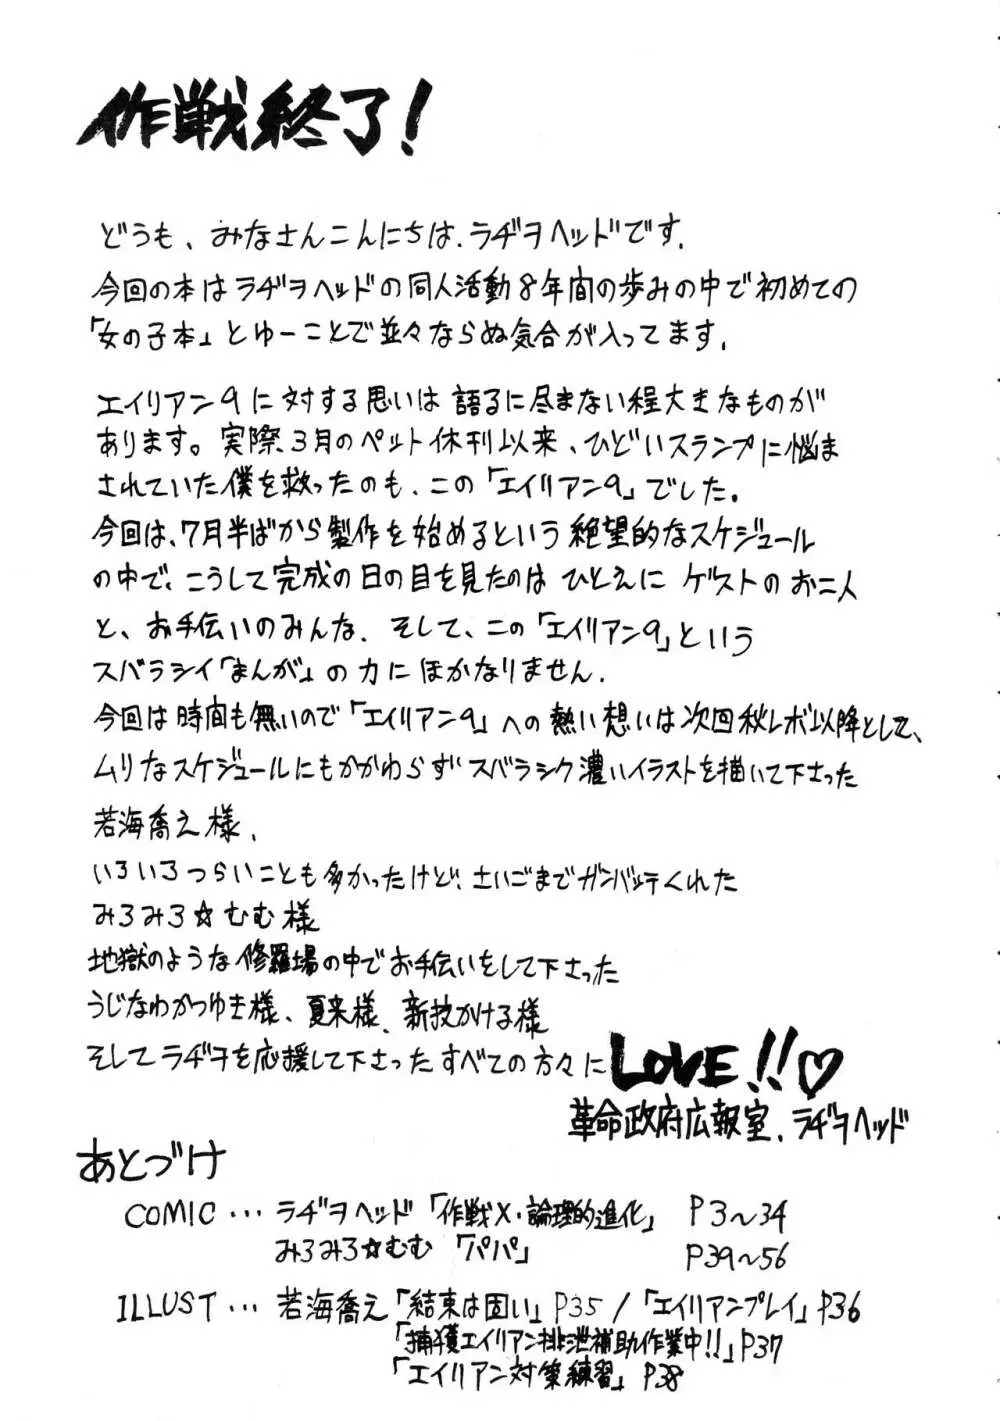 作戦終了!
どうも、みなさんこんにちは.ラヂヲヘッドです.
今回の本はラヂヲヘッドの同人活動8年間の歩みの中で初めての
「女の子本」とゆーことで並々ならぬ気合が入ってます.
エイリアン9に対する思いは語るに尽きない程大きなものが
あります。実際3月のペット休刊以来、ひどいスランプに悩ま
されていた僕を救ったのも、この「エイリアン9」でした。
今回は、7月半ばから製作を始めるという絶望的なスケジュール
の中で、こうして完成の日の目を見たのはひとえにゲストのお二人
と、お手伝いのみんな.そして、この「エイリアン9」という
スバラシイ「まんが」の力にほかなりません.
今回は時間も無いので「エイリアン9」への熱い想いは次回秋レボ以降として、
ムリなスケジュールにもかかわらずスバラシク濃いイラストを描いて下さった
若海喬え様.
いろいろつらいことも多かったけど、さいごまでガンバッテくれた
みろみろ☆むむ様
地獄のような修羅場の中でお手伝いをして下さった
うじなわかつゆき様、夏来様、新技かける様
そしてラヂヲを応援して下さったすべての方々に LOVE!!♡
革命政府広報室、ラヂヲヘッド
あとづけ
COMIC … ラヂヲヘッド「作戦X・論理的進化」 P3〜34
みろみろ☆むむ 「パパ」 P39〜56
ILLUST … 若海喬え「結束は固い」P35 / 「エイリアンプレイ」P36
「捕獲エイリアン排泄補助作業中!!」P37
「エイリアン対策練習」P38